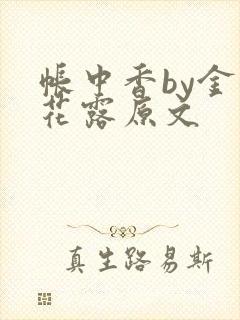 帐中香by金
花露原文
真生路易斯